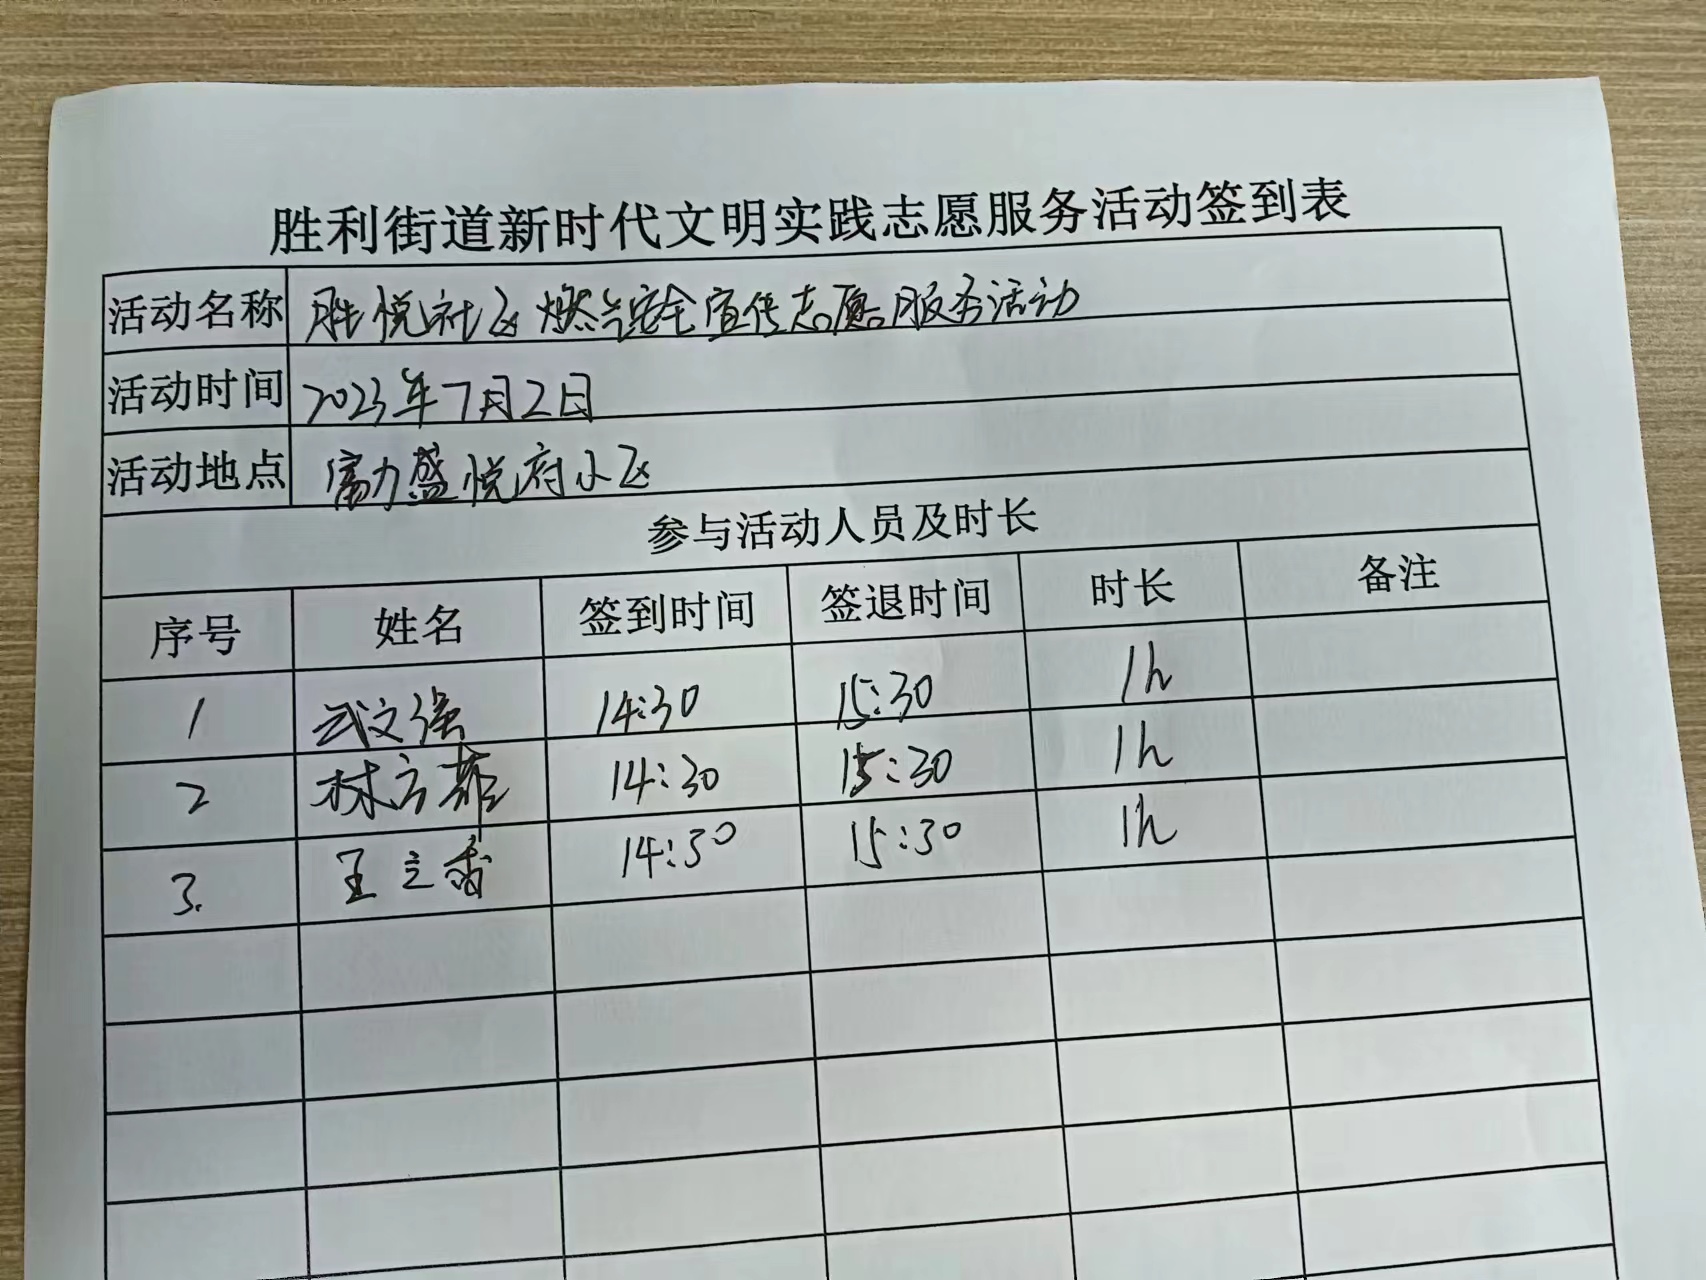 胜利街道新时代文明实践志愿服务活动签到表
活动名称 胜悦社区燃气安全宣传志愿服务活动
活动时间 2023年7月2日
活动地点 富力盛悦府小区
参与活动人员及时长
序号 姓名 签到时间 签退时间 时长 备注
1 武文强 14:30 15:30 1h
2 林方 14:30 15:30 1h
3. 王立香 14:30 15:30 1h